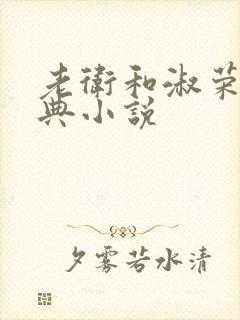 老衛和淑荣
典小説
夕雾若水清